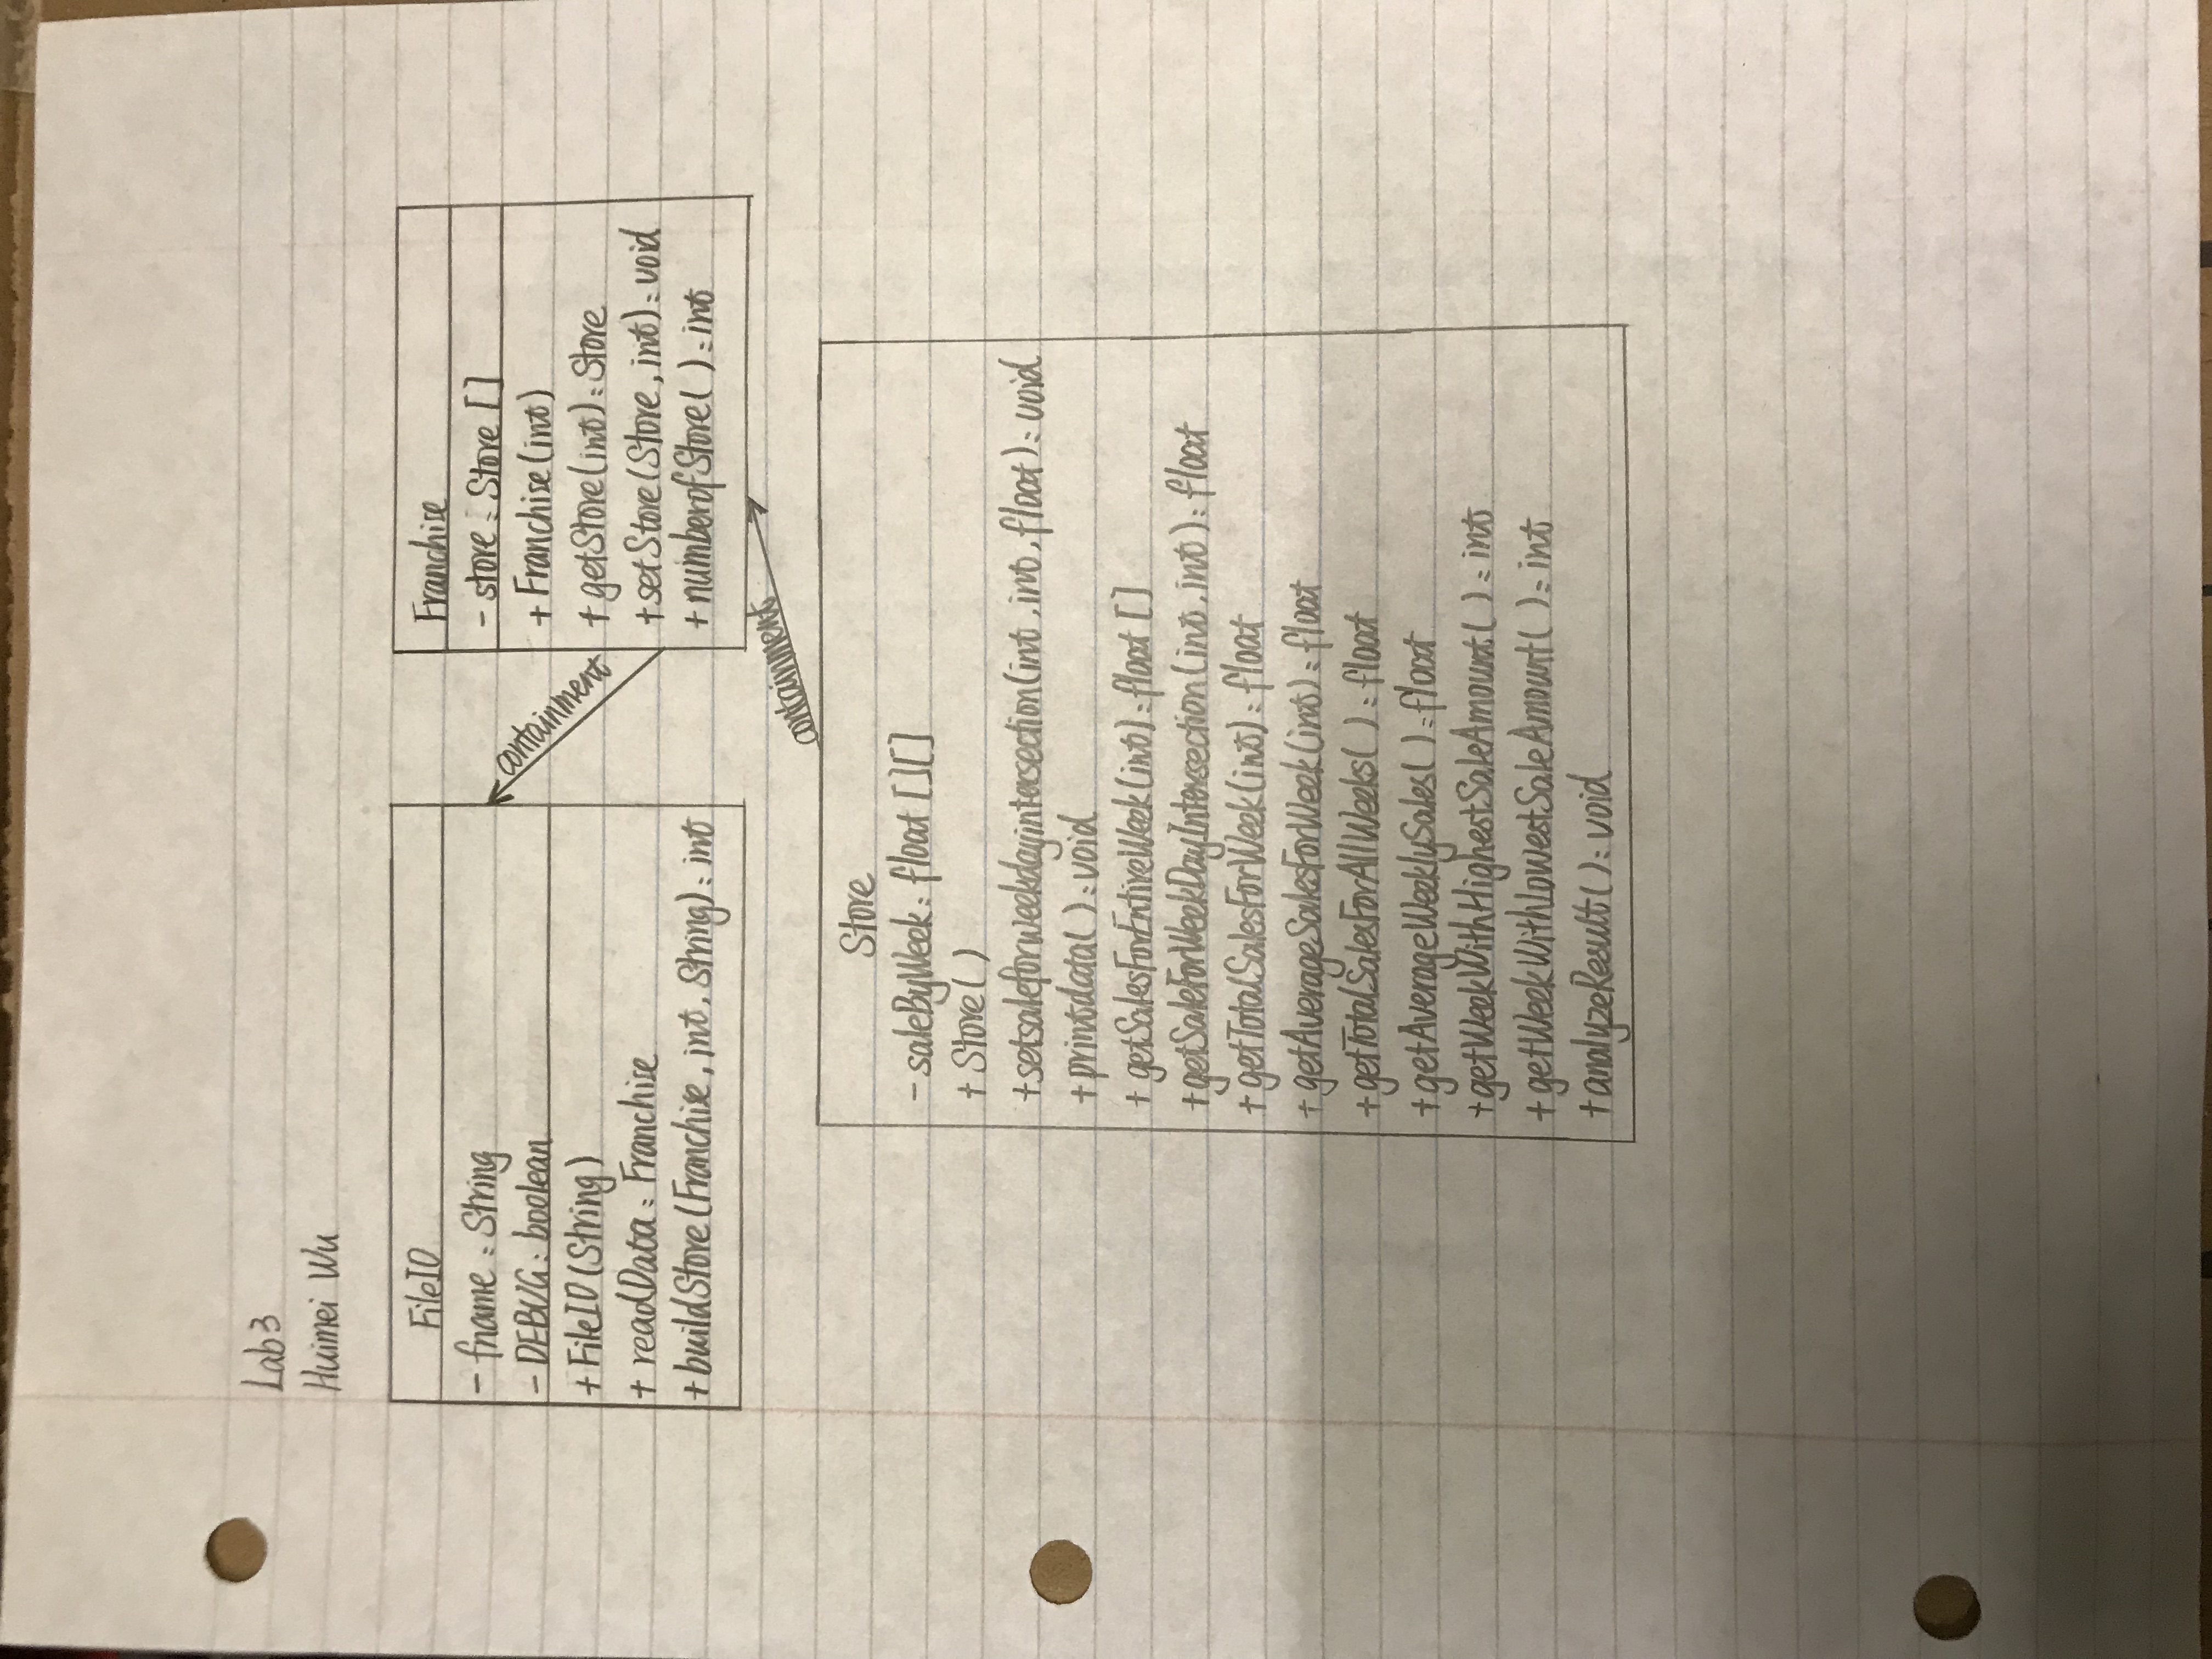 Lab3
Huimei Wu
FileIO
- fname : String
- DEBUG : boolean
+ FileIO (String)
+ readData : Franchise
+ buildStore (Franchise, int, String) : int
containment
Franchise
- store : Store []
+ Franchise (int)
+ getStore (int) : Store
+ setStore (Store, int) : void
+ numberofStore ( ) : int
containment
Store
- saleByWeek : float [][]
+ Store ( )
+ setsaleforweekdayintersection (int, int, float) : void
+ printdata ( ) : void
+ getSalesForEntireWeek (int) : float []
+ getSaleForWeekDayIntersection (int, int) : float
+ getTotalSalesForWeek (int) : float
+ getAverageSalesForWeek (int) : float
+ getTotalSalesForAllWeeks ( ) : float
+ getAverageWeeklySales ( ) : float
+ getWeekWithHighestSaleAmount ( ) : int
+ getWeekWithLowestSaleAmount ( ) : int
+ analyzeResult ( ) : void